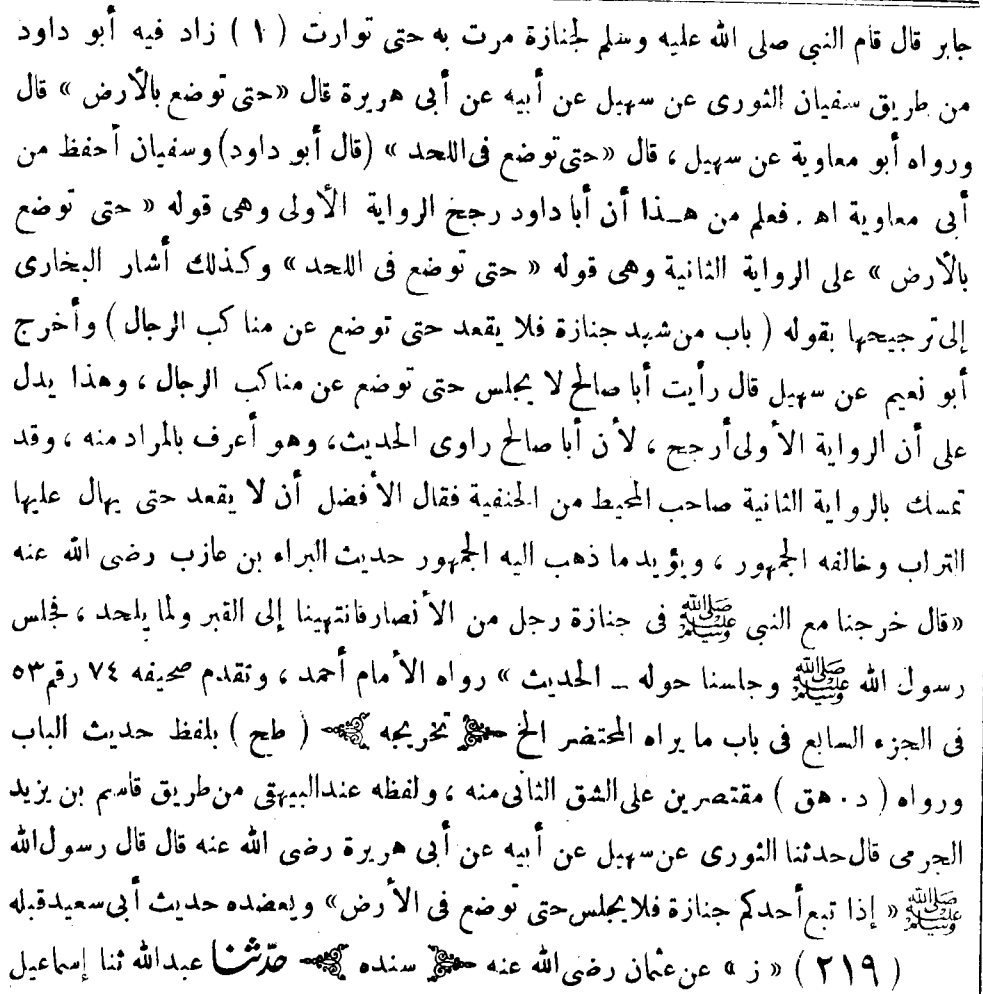 جابر قال قام النبي صلى الله عليه وسلم لجنازة مرت به حتى توارت (١) زاد فيه أبو داود
من طريق سفيان الثورى عن سهيل عن أبيه عن أبى هريرة قال «حتى توضع بالأرض» قال
ورواه أبو معاوية عن سهيل، قال «حتى توضع فى اللحد» (قال أبو داود) وسفيان أحفظ من
أبى معاوية اهـ. فعلم من هــذا أن أبا داود رجخ الرواية الأولى وهى قوله «حتى توضع
بالأرض» على الرواية الثانية وهى قوله «حتى توضع فى اللحد» وكذلك أشار البخارى
إلى ترجيحها بقوله (باب من شهد جنازة فلا يقعد حتى توضع عن مناكب الرجال) وأخرج
أبو نعيم عن سهيل قال رأيت أبا صالح لا يجلس حتى توضع عن مناكب الرجال، وهذا يدل
على أن الرواية الأولى أرجح، لأن أبا صالح راوى الحديث، وهو أعرف بالمراد منه، وقد
تمسك بالرواية الثانية صاحب المحيط من الحنفية فقال الأفضل أن لا يقعد حتى يهال عليها
التراب وخالفه الجمهور، ويؤيد ما ذهب اليه الجمهور حديث البراء بن عازب رضى الله عنه
«قال خرجنا مع النبي ﷺ فى جنازة رجل من الأنصار فانتهينا إلى القبر ولما يلحد، فجلس
رسول الله ﷺ وجلسنا حوله ــ الحديث» رواه الأمام أحمد، وتقدم صحيفه ٧٤ رقم ٥٣
فى الجزء السابع فى باب ما يراه المحتضر الخ تخريجه (طح) بلفظ حديث الباب
ورواه (د. هق) مقتصرين على الشق الثانى منه، ولفظه عند البيهقى من طريق قاسم بن يزيد
الجرمى قال حدثنا الثورى عن سهيل عن أبيه عن أبى هريرة رضى الله عنه قال قال رسول الله
ﷺ «إذا تبع أحدكم جنازة فلا يجلس حتى توضع فى الأرض» ويعضده حديث أبى سعيد قبله
(٢١٩) «ز» عن عثمان رضى الله عنه سنده حدّثنا عبد الله ثنا إسماعيل